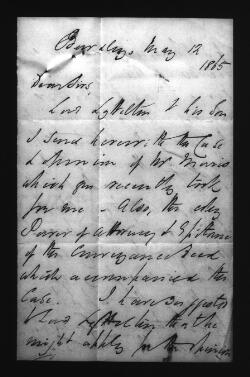 Thursday, May 12
1865
Dear Sirs,
Lord Lyttelton & his Son
I send herewith the Case
& Opinion of Mr. Morris
which you recently took
for me – Also, the
Power of Attorney &
of the Conveyance Deed
which accompanied the
Case. I have suggested
to Lord Lyttelton that he
might apply for the